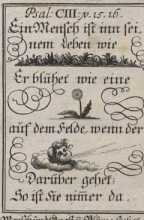 Psal. CIII. v. 15. 16.
Ein Mensch ist inn sei,
nem Leben wie
Er blühet wie eine
auf dem Felde, wenn der
Darüber gehet,
So ist Sie nim̄er da.